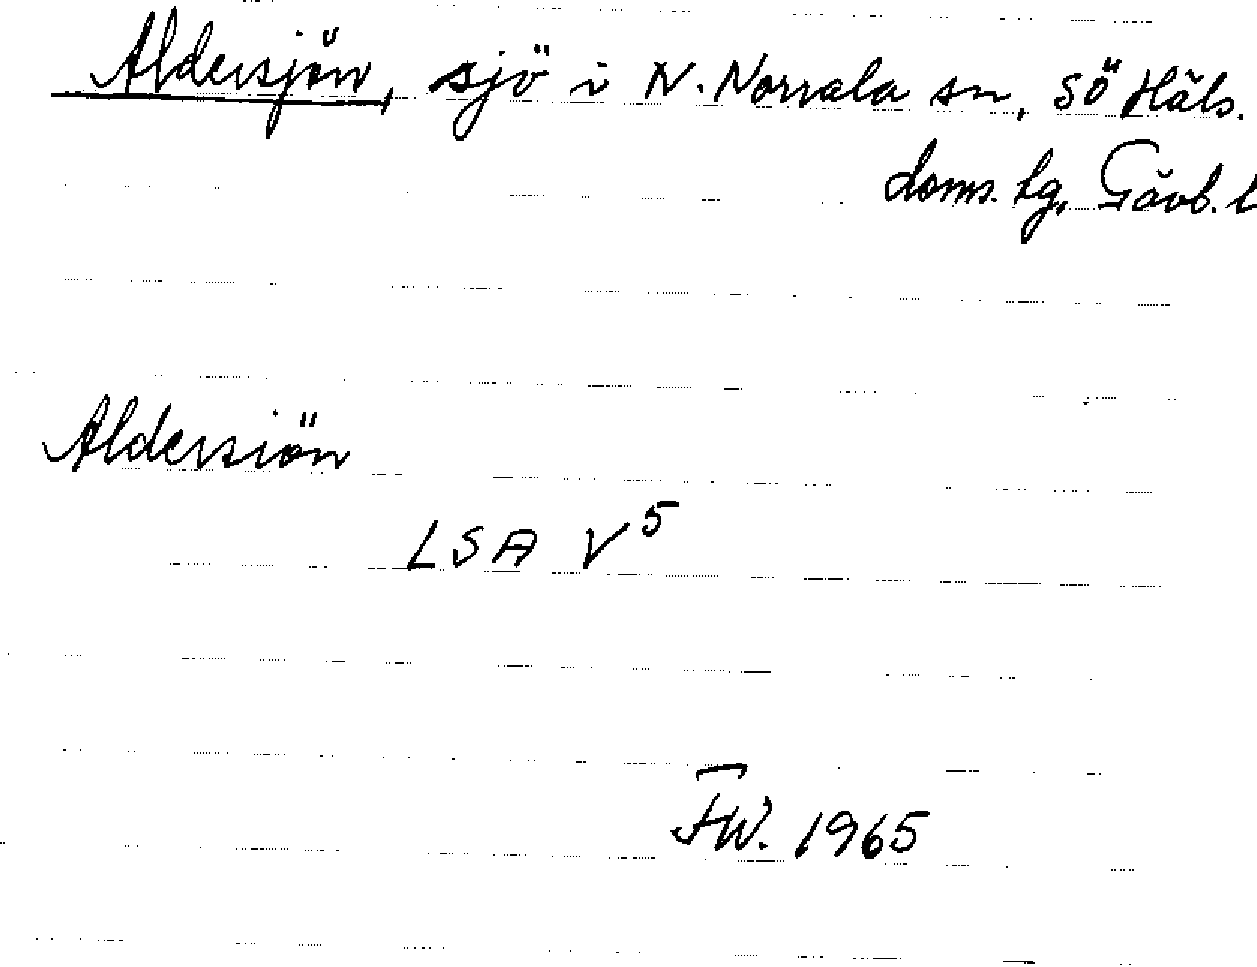 Aldersjön, sjö i N. Norrala sn, Sö Häls.
doms. lg, Gävb. l
Aldersiön
LSA V5
FW. 1965